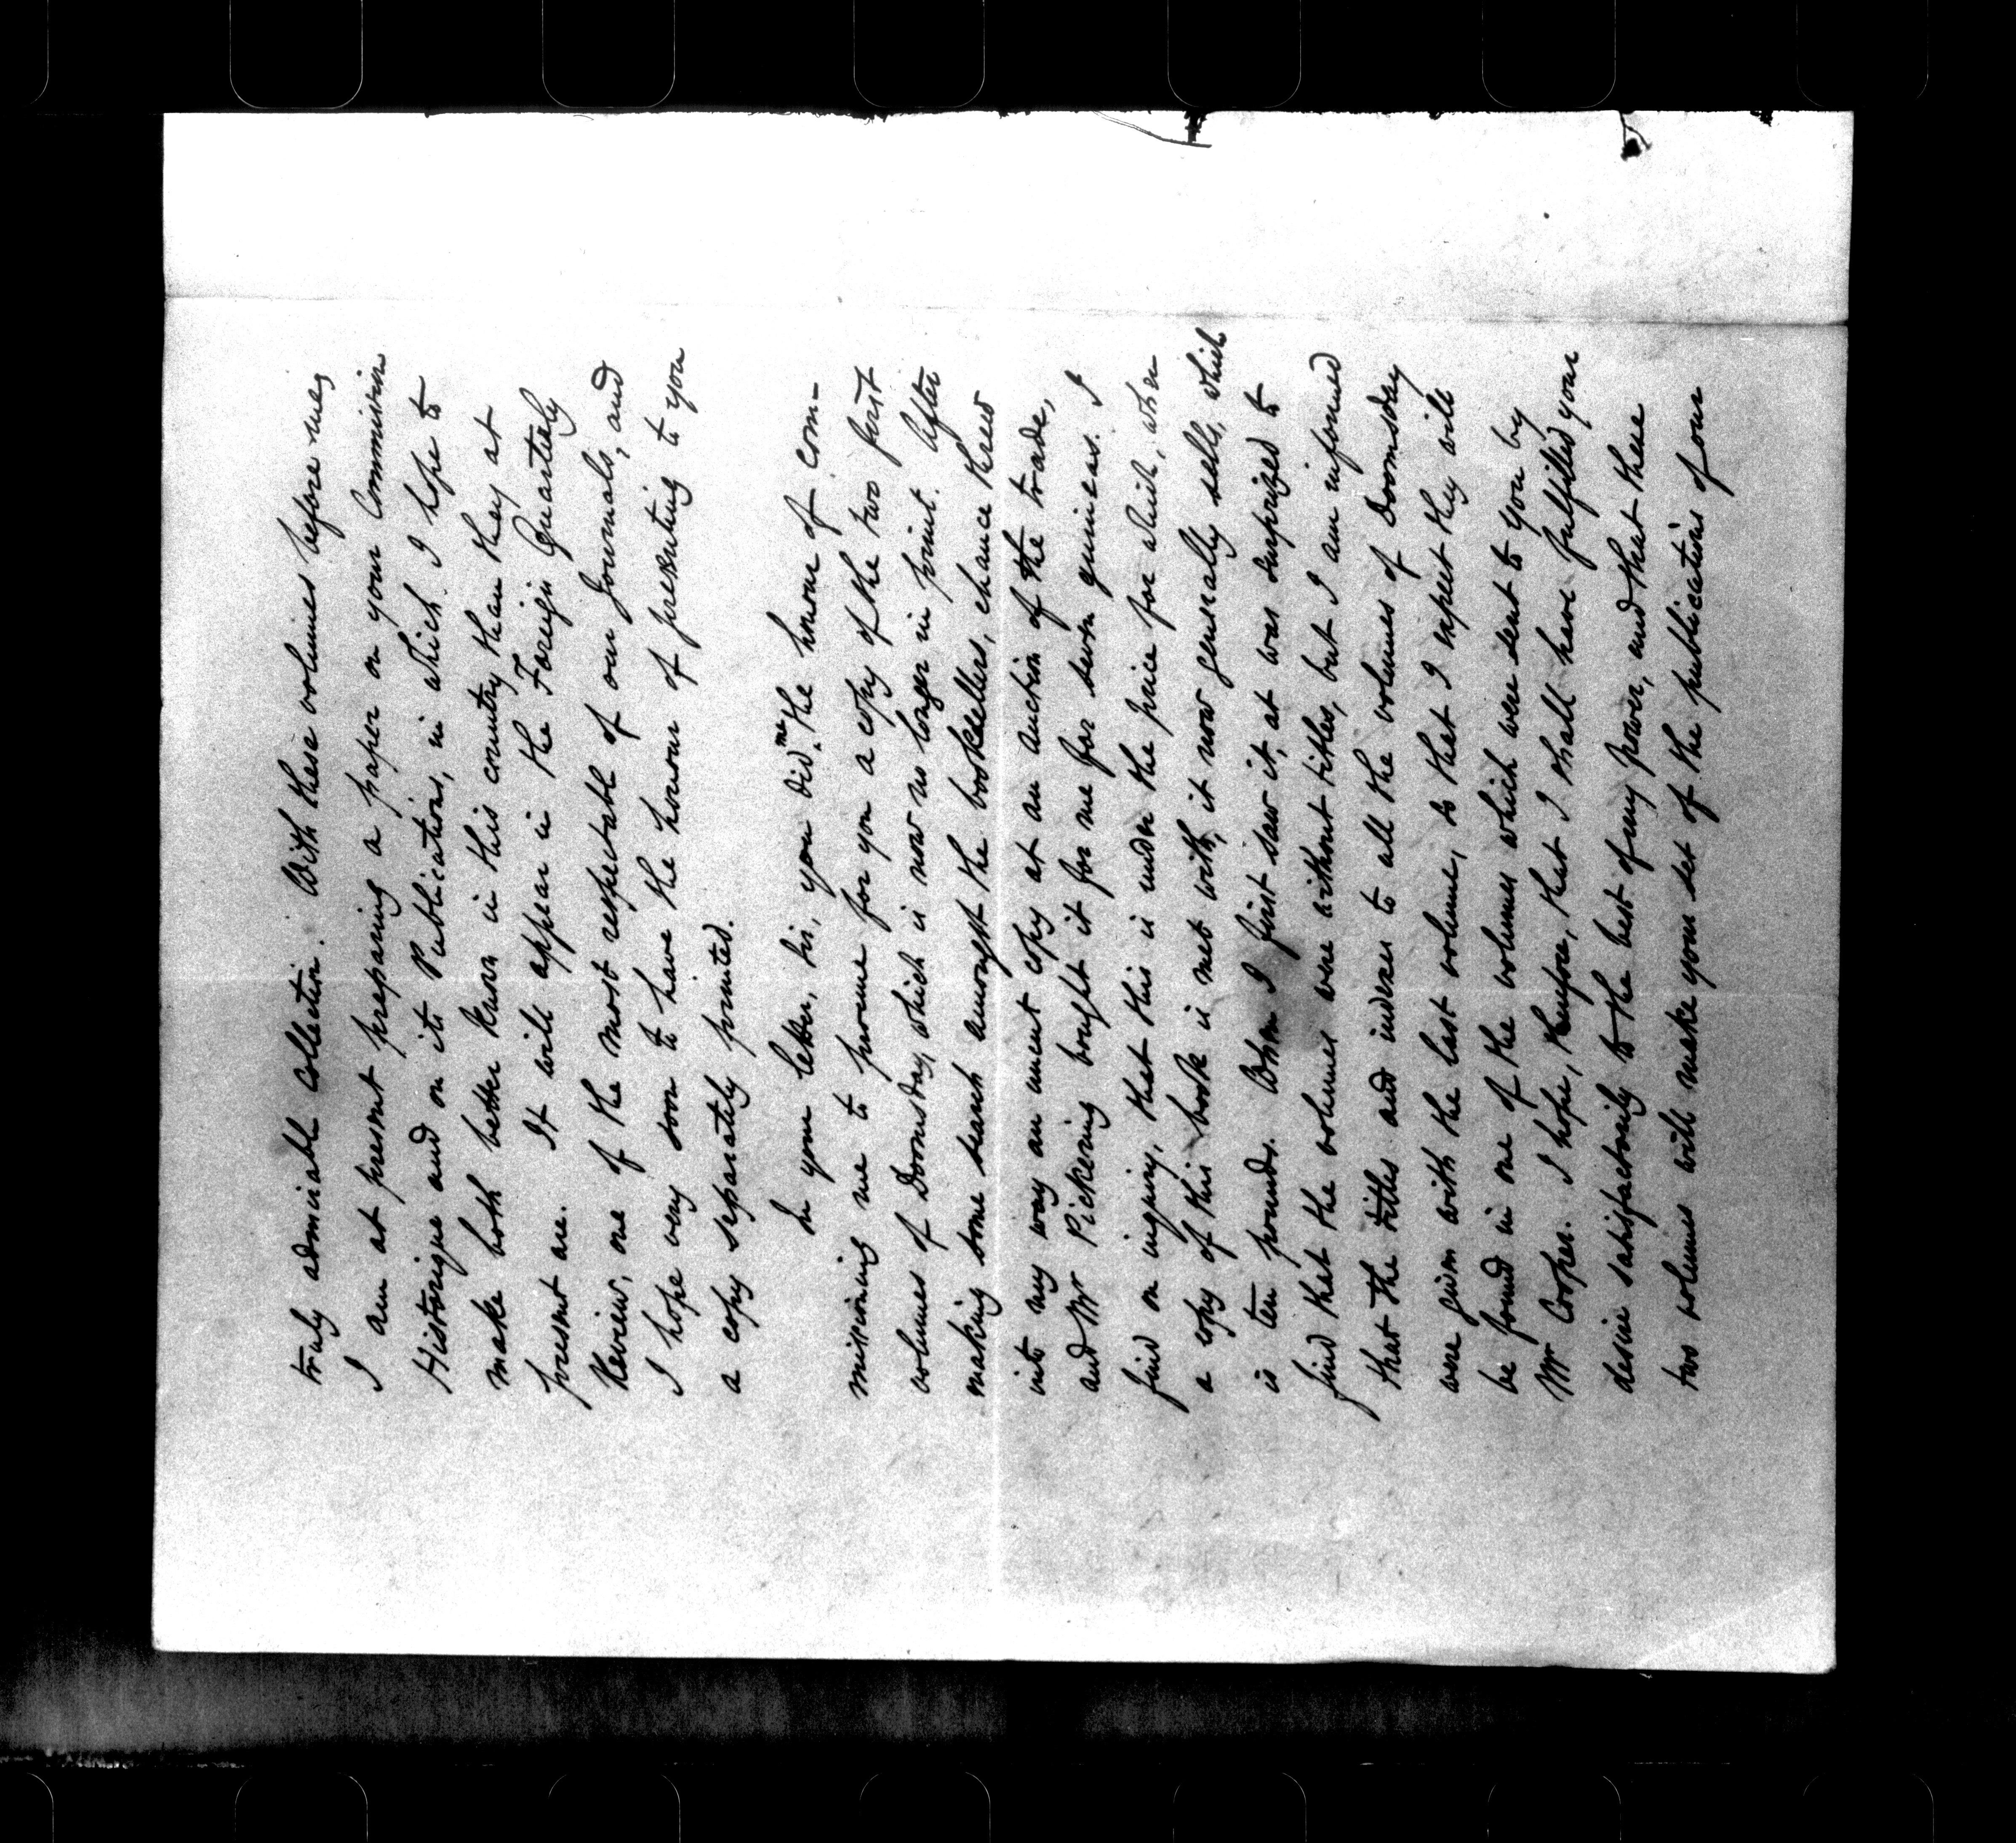 truly admirable collection. With these volumes before me,
I am at present preparing a paper on your Commission
Historique and on its Publications, in which I hope to
make both better known in this country than they at
present are. It will appear in the Foreign Quarterly
Review, one of the most respectable of our Journals, and
I hope very soon to have the honour of presenting to you
a copy separately printed.
In your letter, Sir, you did me the honour of com-
missioning me to procure for you a copy of the two first
volumes of Doomsday, which is now no longer in print. After
making some search amongst the booksellers, chance threw
into my way an uncut copy at an auction of the trade,
and Mr Pickering bought it for me for seven guineas. I
find on inquiry, that this is under the price for which, when
a copy of this book is met with, it now generally sells, which
is ten pounds. When I first saw it, I was surprized to
find that the volumes were without titles, but I am informed
that the titles and indexes to all the volumes of Doomsday
were given with the last volume, so that I expect they will
be found in one of the volumes which were sent to you by
Mr Cooper. I hope, therefore, that I shall have fulfilled your
desire satisfactorily to the best of my power, and that these
two volumes will make your set of the publications of our